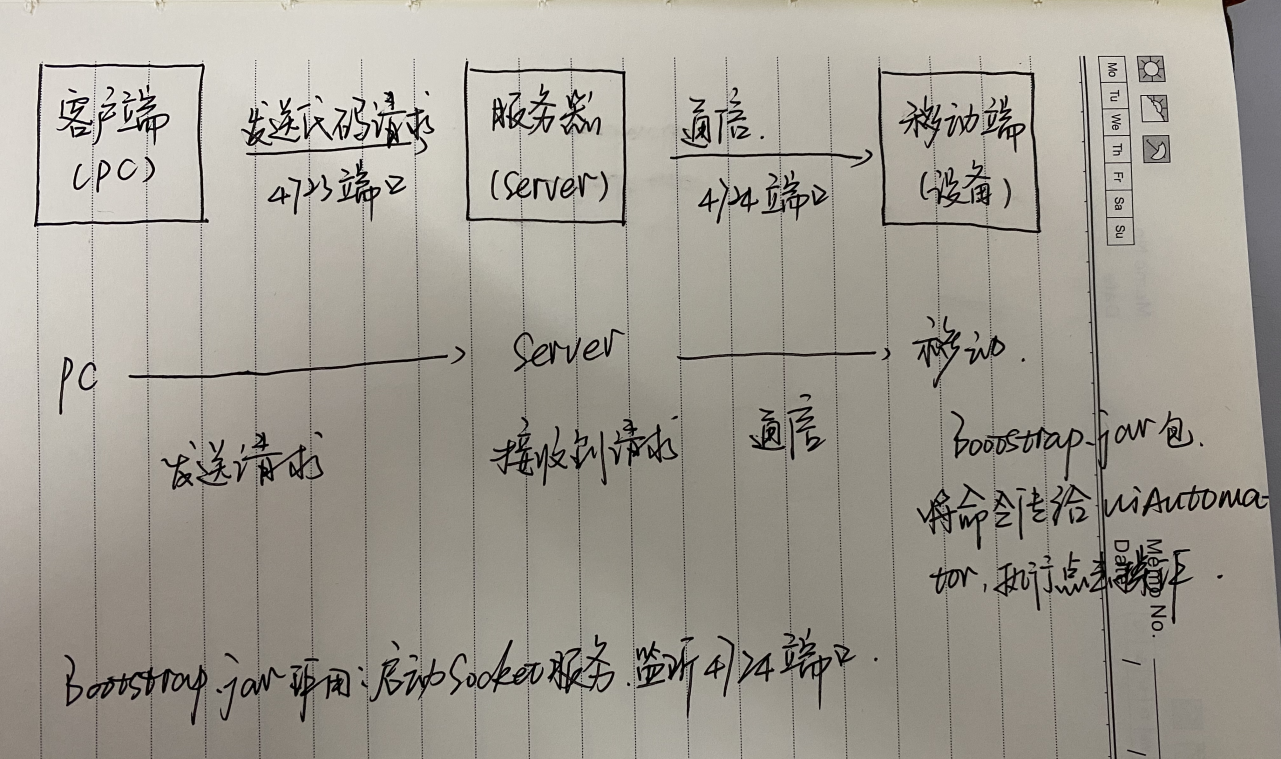 客户端
(PC)
发送代码请求
4723端口
服务器
(server)
通信.
4724端口
移动端
(设备)
Mo Tu We Th Fr Sa Su
PC
Server
移动.
发送请求
接收到请求
通信
Bootstrap.jar包.
将命令传给uiAutoma-
tor,执行点击操作.
Memo No.
Date
Bootstrap.jar作用:启动Socket服务.监听4724端口.